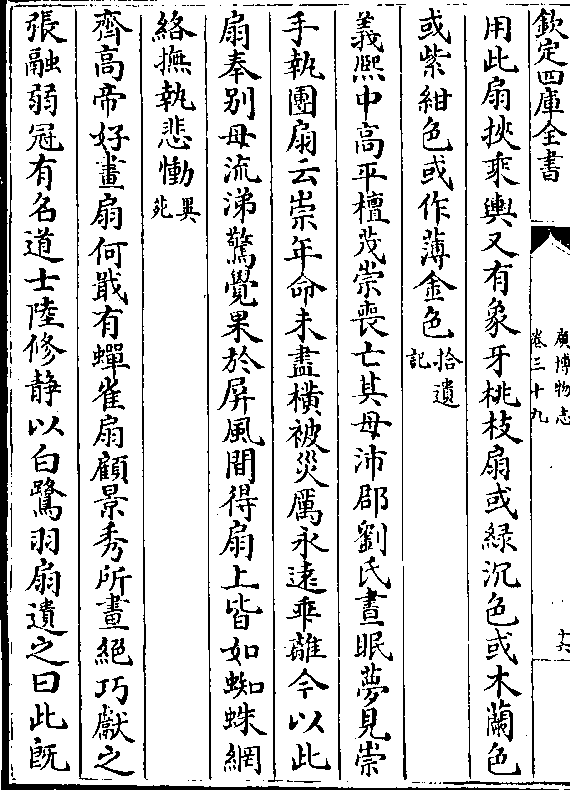 欽定四庫全書
廣博物志
卷三十九
十六
用此扇挾乘輿又有象牙桃枝扇或緑沉色或木蘭色
或紫紺色或作薄金色拾遺記
義熈中高平檀茂崇喪亡其母沛郡劉氏晝眠夢見崇
手執團扇云崇年命未盡横被災厲永逺乖離今以此
扇奉别母流涕驚覺果於屏風間得扇上皆如蜘蛛網
絡撫執悲慟異苑
齊高帝好畫扇何戢有蟬雀扇顧景秀所畫絕巧獻之
張融弱冠有名道士陸修静以白鷺羽扇遺之曰此既